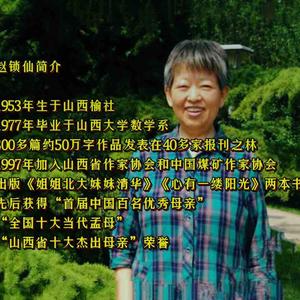 赵锁仙简介
1953年生于山西榆社
1977年毕业于山西大学数学系
300多篇约50万字作品发表在40多家报刊之林
1997年加入山西省作家协会和中国煤矿作家协会
出版《姐姐北大妹妹清华》《心有一缕阳光》两本书
先后获得“首届中国百名优秀母亲”
“全国十大当代孟母”
“山西省十大杰出母亲”荣誉